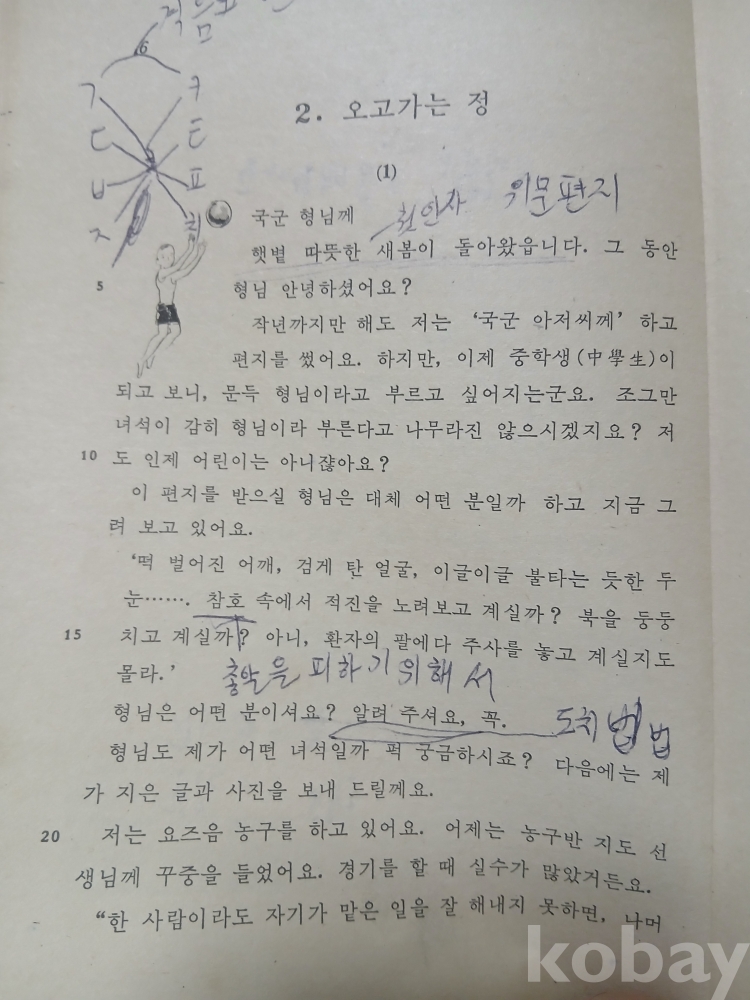 적음
6
ㄱ ㅋ
ㄷ ㅌ
ㅂ ㅍ
ㅈ ㅊ
2. 오고가는 정
(1)
국군 형님께 첫인사 위문편지
햇볕 따뜻한 새봄이 돌아왔읍니다. 그 동안
5 형님 안녕하셨어요?
작년까지만 해도 저는 ‘국군 아저씨께’ 하고
편지를 썼어요. 하지만, 이제 중학생(中學生)이
되고 보니, 문득 형님이라고 부르고 싶어지는군요. 조그만
녀석이 감히 형님이라 부른다고 나무라진 않으시겠지요? 저
10 도 인제 어린이는 아니쟎아요?
이 편지를 받으실 형님은 대체 어떤 분일까 하고 지금 그
려 보고 있어요.
‘떡 벌어진 어깨, 검게 탄 얼굴, 이글이글 불타는 듯한 두
눈……. 참호 속에서 적진을 노려보고 계실까? 북을 둥둥
15 치고 계실까? 아니, 환자의 팔에다 주사를 놓고 계실지도
몰라.’ 총알을 피하기 위해서
형님은 어떤 분이셔요? 알려 주셔요, 꼭. 도치법 법
형님도 제가 어떤 녀석일까 퍽 궁금하시죠? 다음에는 제
가 지은 글과 사진을 보내 드릴께요.
20 저는 요즈음 농구를 하고 있어요. 어제는 농구반 지도 선
생님께 꾸중을 들었어요. 경기를 할 때 실수가 많았거든요.
“한 사람이라도 자기가 맡은 일을 잘 해내지 못하면, 나머
kobay